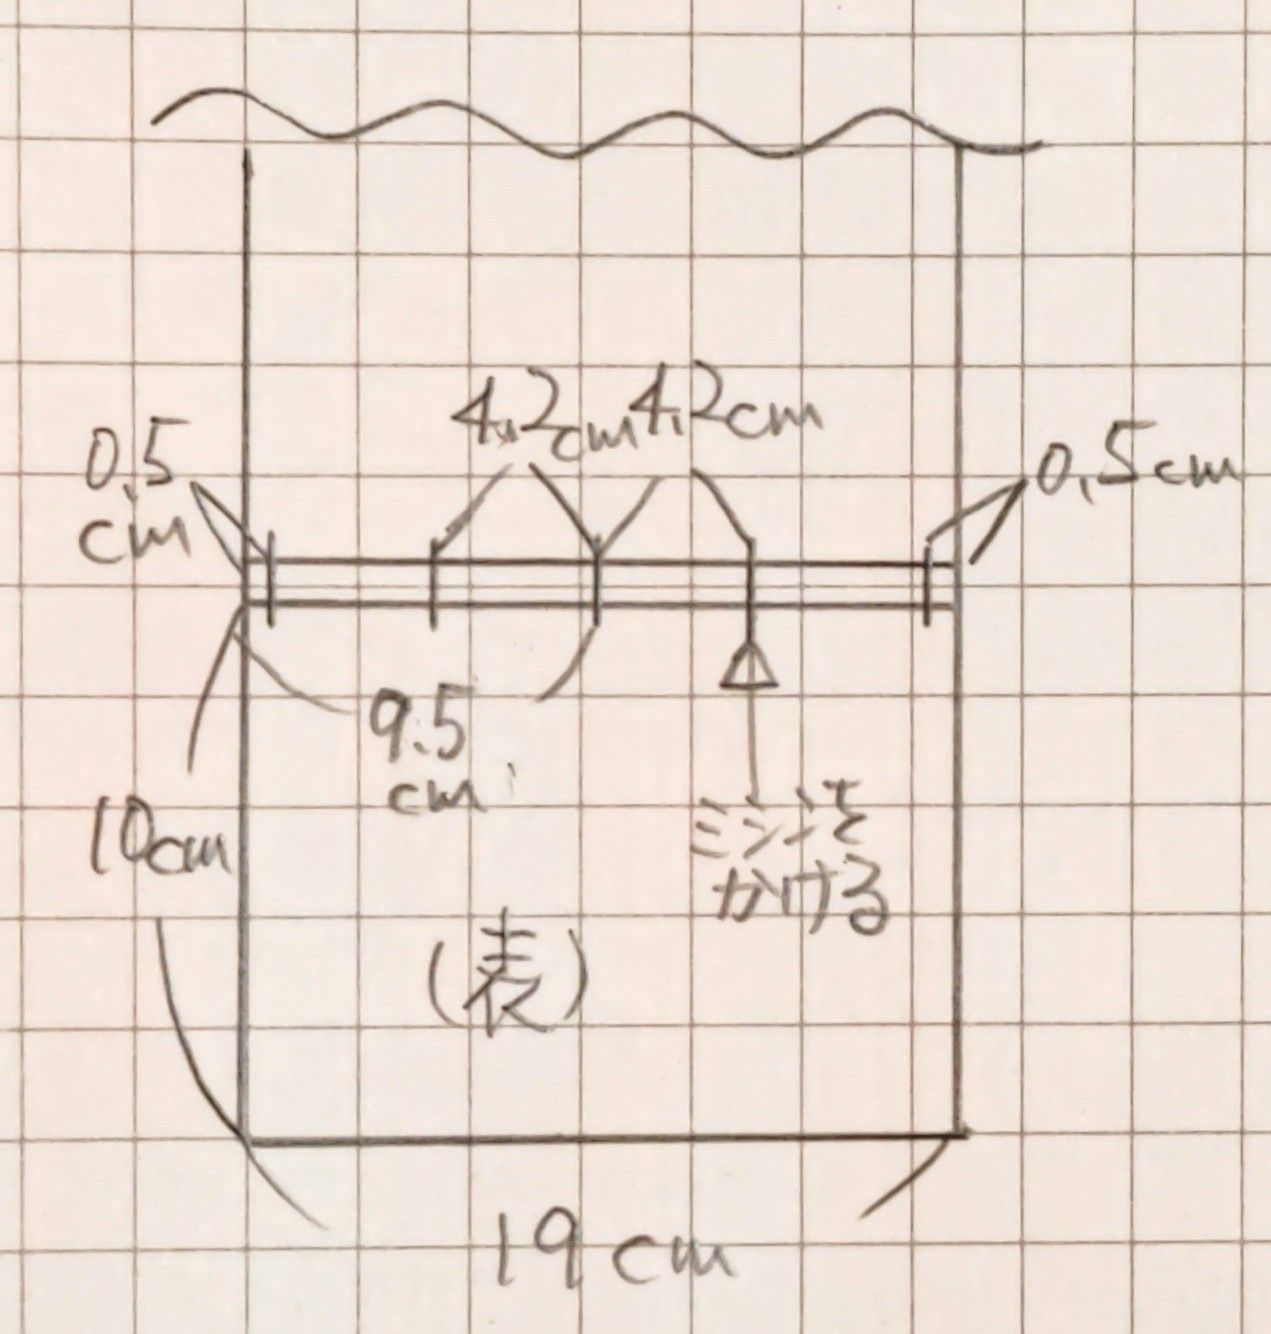 4.2cm 4.2cm
0.5
cm
0.5cm
9.5
cm
10cm
ミシンを
かける
(表)
19cm